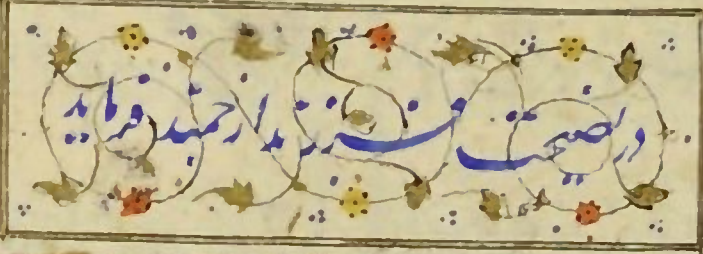 در نصیحت فرزند ارجمند فرماید